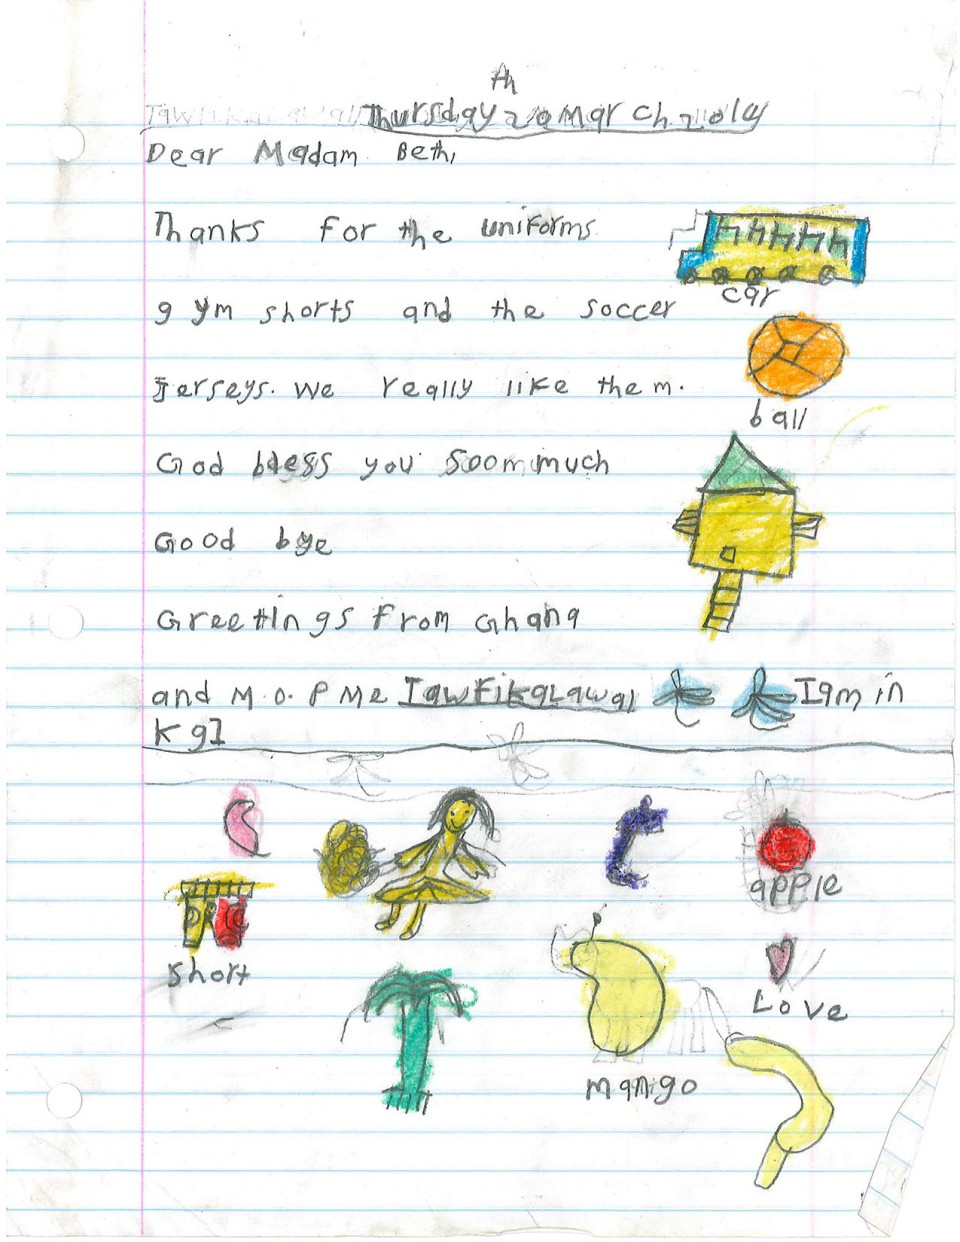 th
Thursday 20 March 2014
Dear Madam Beth,
Thanks for the uniforms
car
gym shorts and the soccer
Jerseys. We really like them.
ball
God bless you Soom much
Good bye
Greetings from Ghana
and M.O.P Me Tawfik Lawal I am in
KG1
apple
short
Love
mango